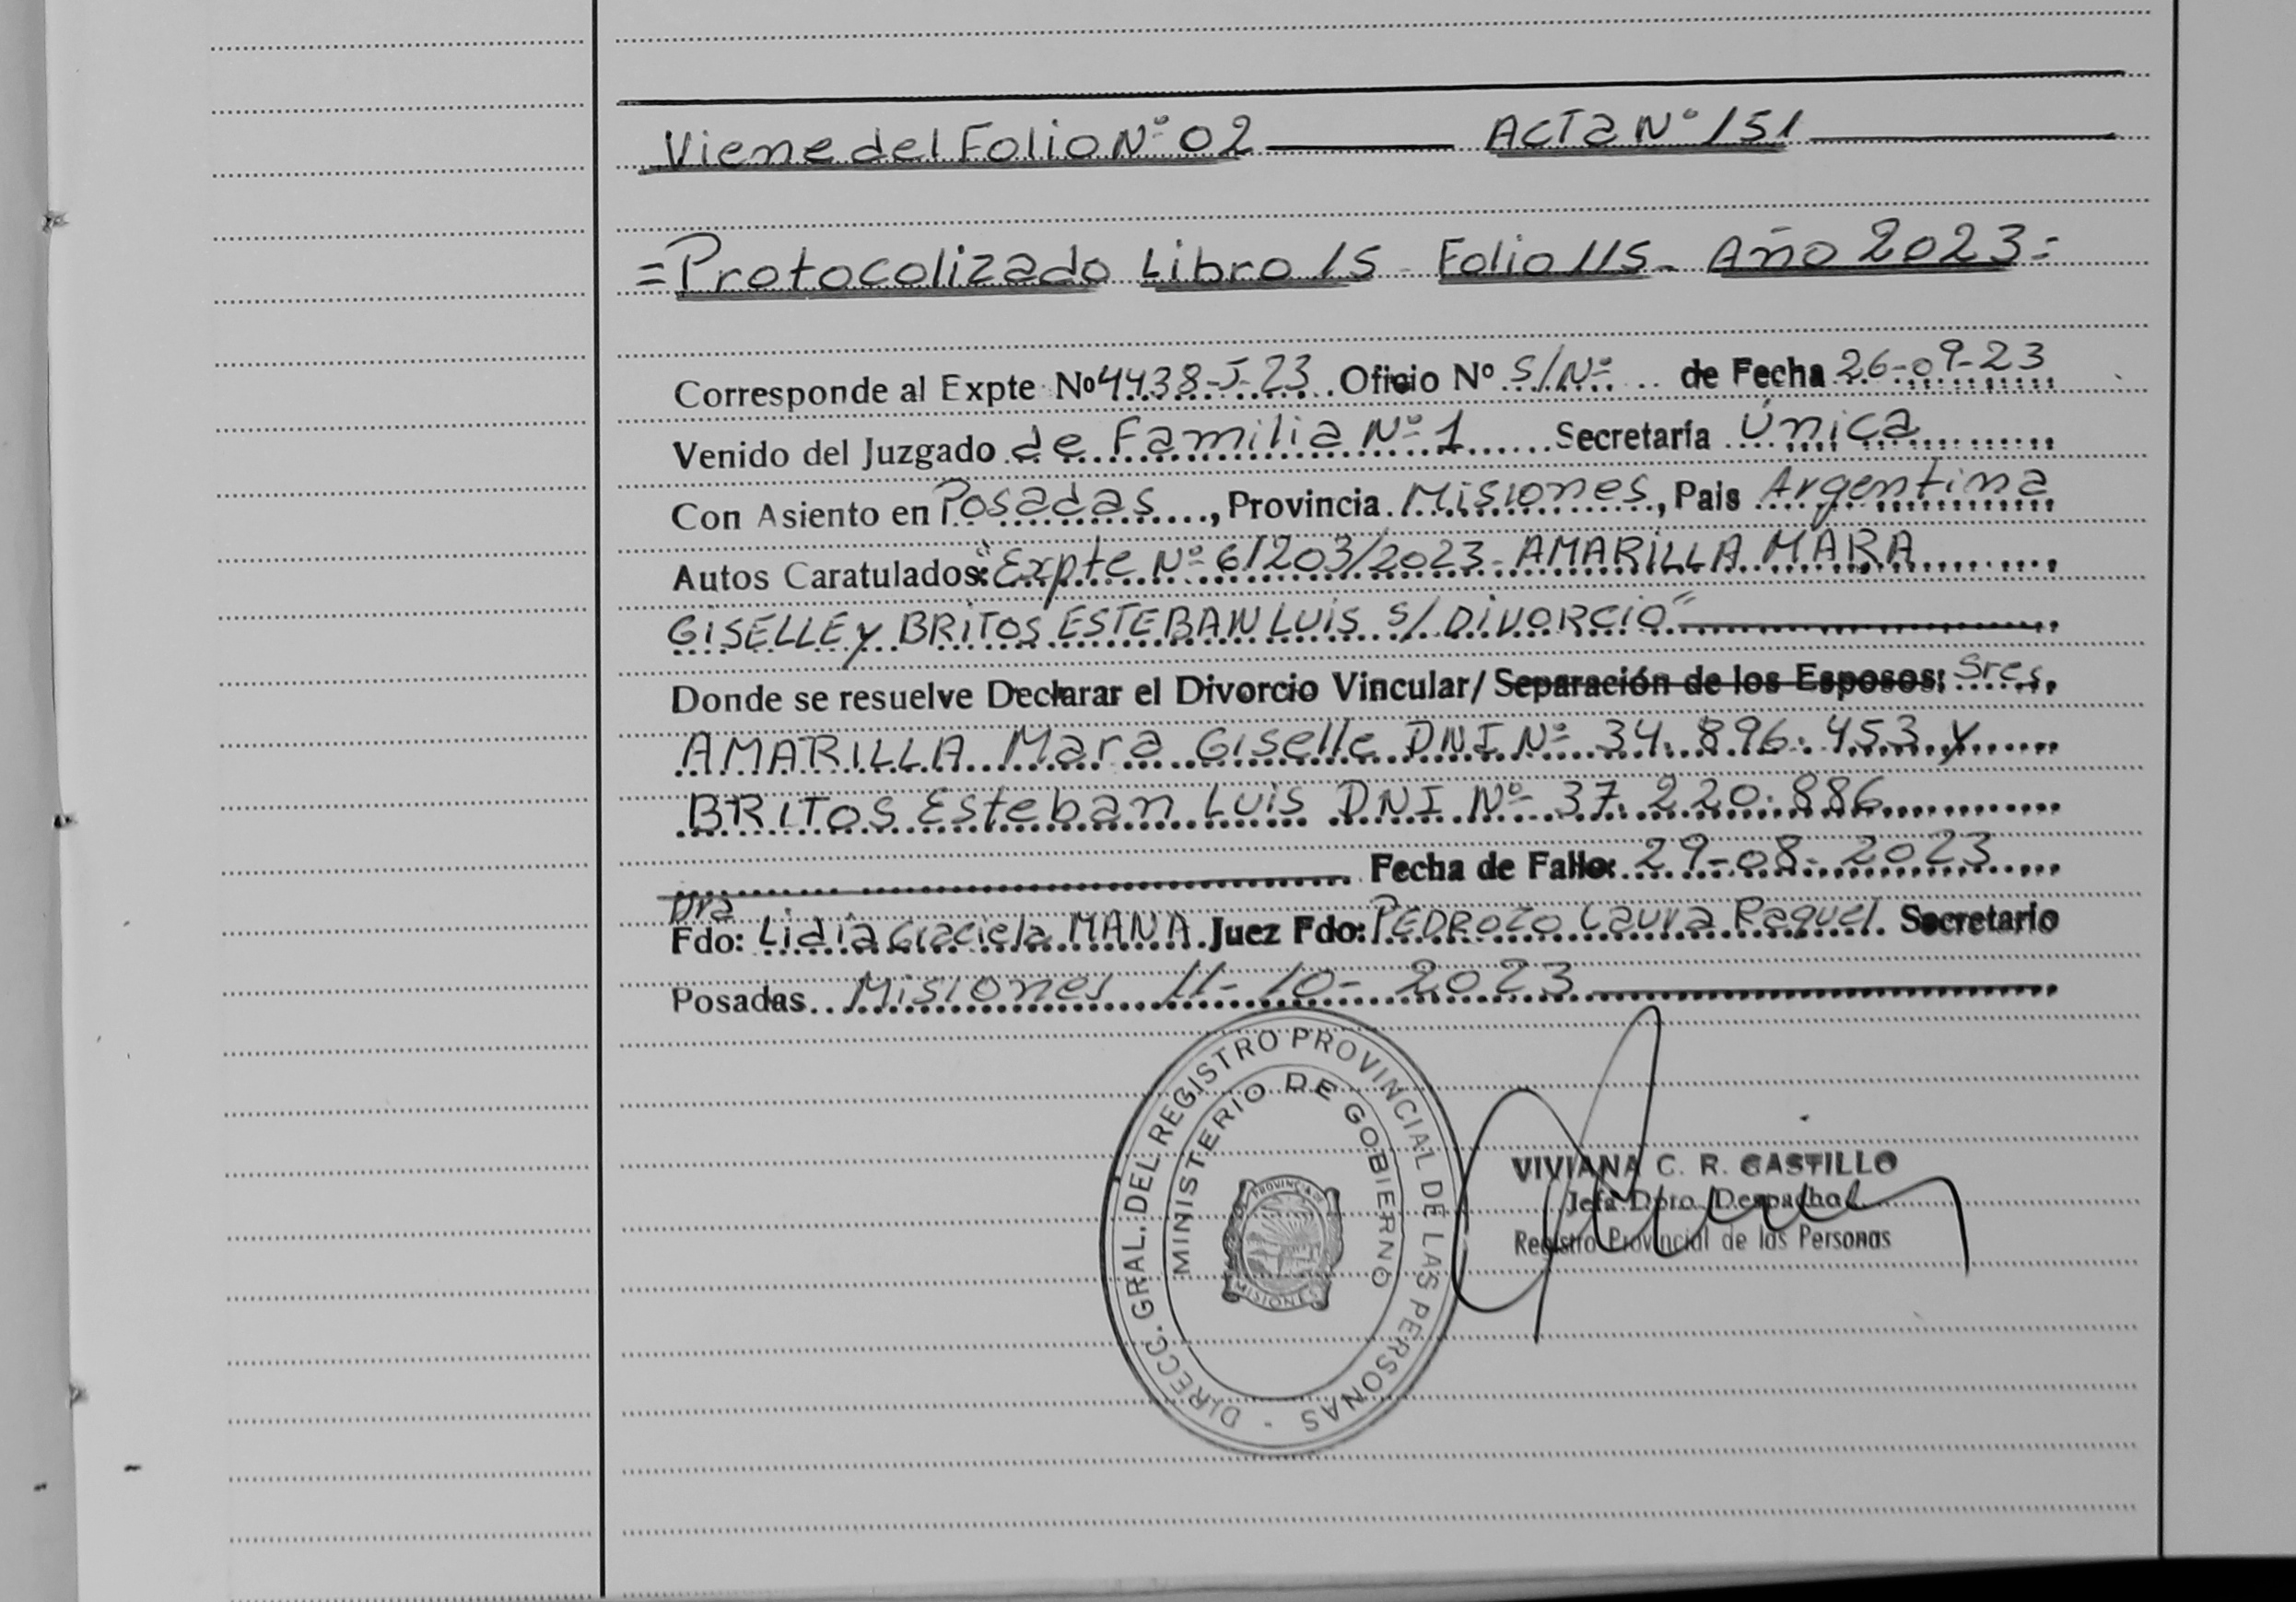 Viene del Folio Nº 02 ACTA Nº 151
= Protocolizado Libro 15 - Folio 115 - Año 2023 =
Corresponde al Expte Nº 4438-J-23 Oficio Nº S/Nº de Fecha 26-09-23
Venido del Juzgado de Familia Nº 1 Secretaría Única
Con Asiento en Posadas, Provincia Misiones, Pais Argentina
Autos Caratulados: "Expte Nº 61203/2023 - AMARILLA MARA
GISELLE y BRITOS ESTEBAN LUIS S/ DIVORCIO"
Donde se resuelve Declarar el Divorcio Vincular/ Separación de los Esposos: Sres.
AMARILLA Mara Giselle DNI Nº 34.896.453 y
BRITOS Esteban Luis DNI Nº 37.220.886
Fecha de Fallo: 29-08-2023
Dra
Fdo: Lidia Graciela MANA Juez Fdo: PEDROZO Laura Raquel Secretario
Posadas Misiones 11-10-2023
DIRECC. GRAL. DEL REGISTRO PROVINCIAL DE LAS PERSONAS -
MINISTERIO DE GOBIERNO
PROVINCIA DE
MISIONES
VIVIANA C. R. CASTILLO
Jefa Dpto. Despacho
Registro Provincial de las Personas